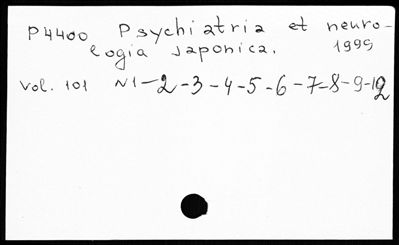 P4400 Psychiatria et neuro-
logia Japonica. 1999
Vol. 101 N1-2-3-4-5-6-7-8-9-12